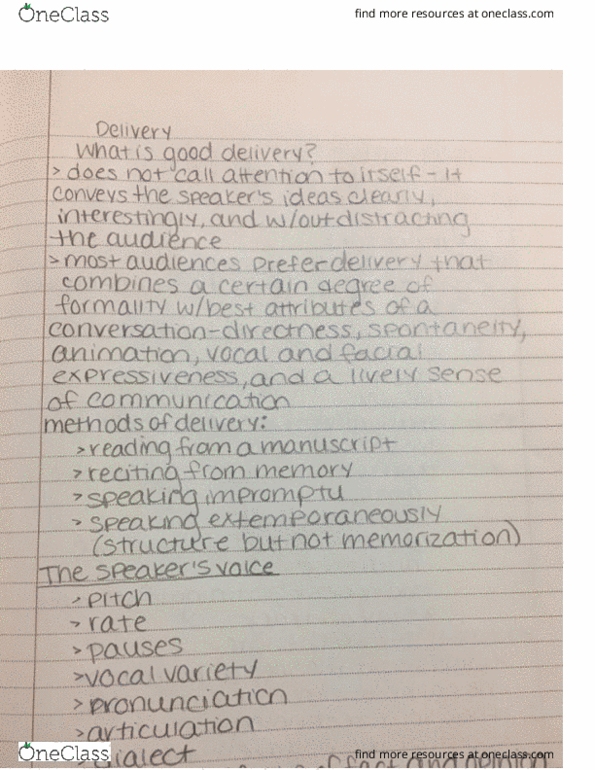 OneClass
find more resources at oneclass.com
Delivery
What is good delivery?
> does not call attention to itself - It
conveys the speaker's ideas clearly,
interestingly, and w/out distracting
the audience
> most audiences prefer delivery that
combines a certain degree of
formality w/best attributes of a
conversation-directness, spontaneity,
animation, vocal and facial
expressiveness, and a lively sense
of communication
methods of delivery:
> reading from a manuscript
> reciting from memory
> speaking impromptu
> speaking extemporaneously
(structure but not memorization)
The speaker's voice
> pitch
> rate
> pauses
> vocal variety
> pronunciation
> articulation
> dialect
OneClass
find more resources at oneclass.com